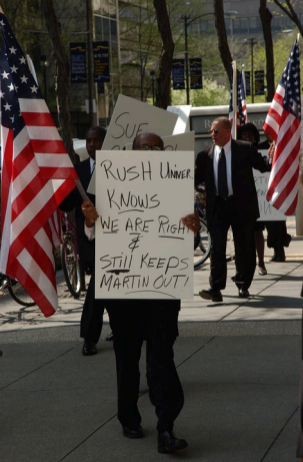 SUE
RUSH UNIVER.
KNOWS
WE ARE RIGHT
&
STILL KEEPS
MARTIN OUT!